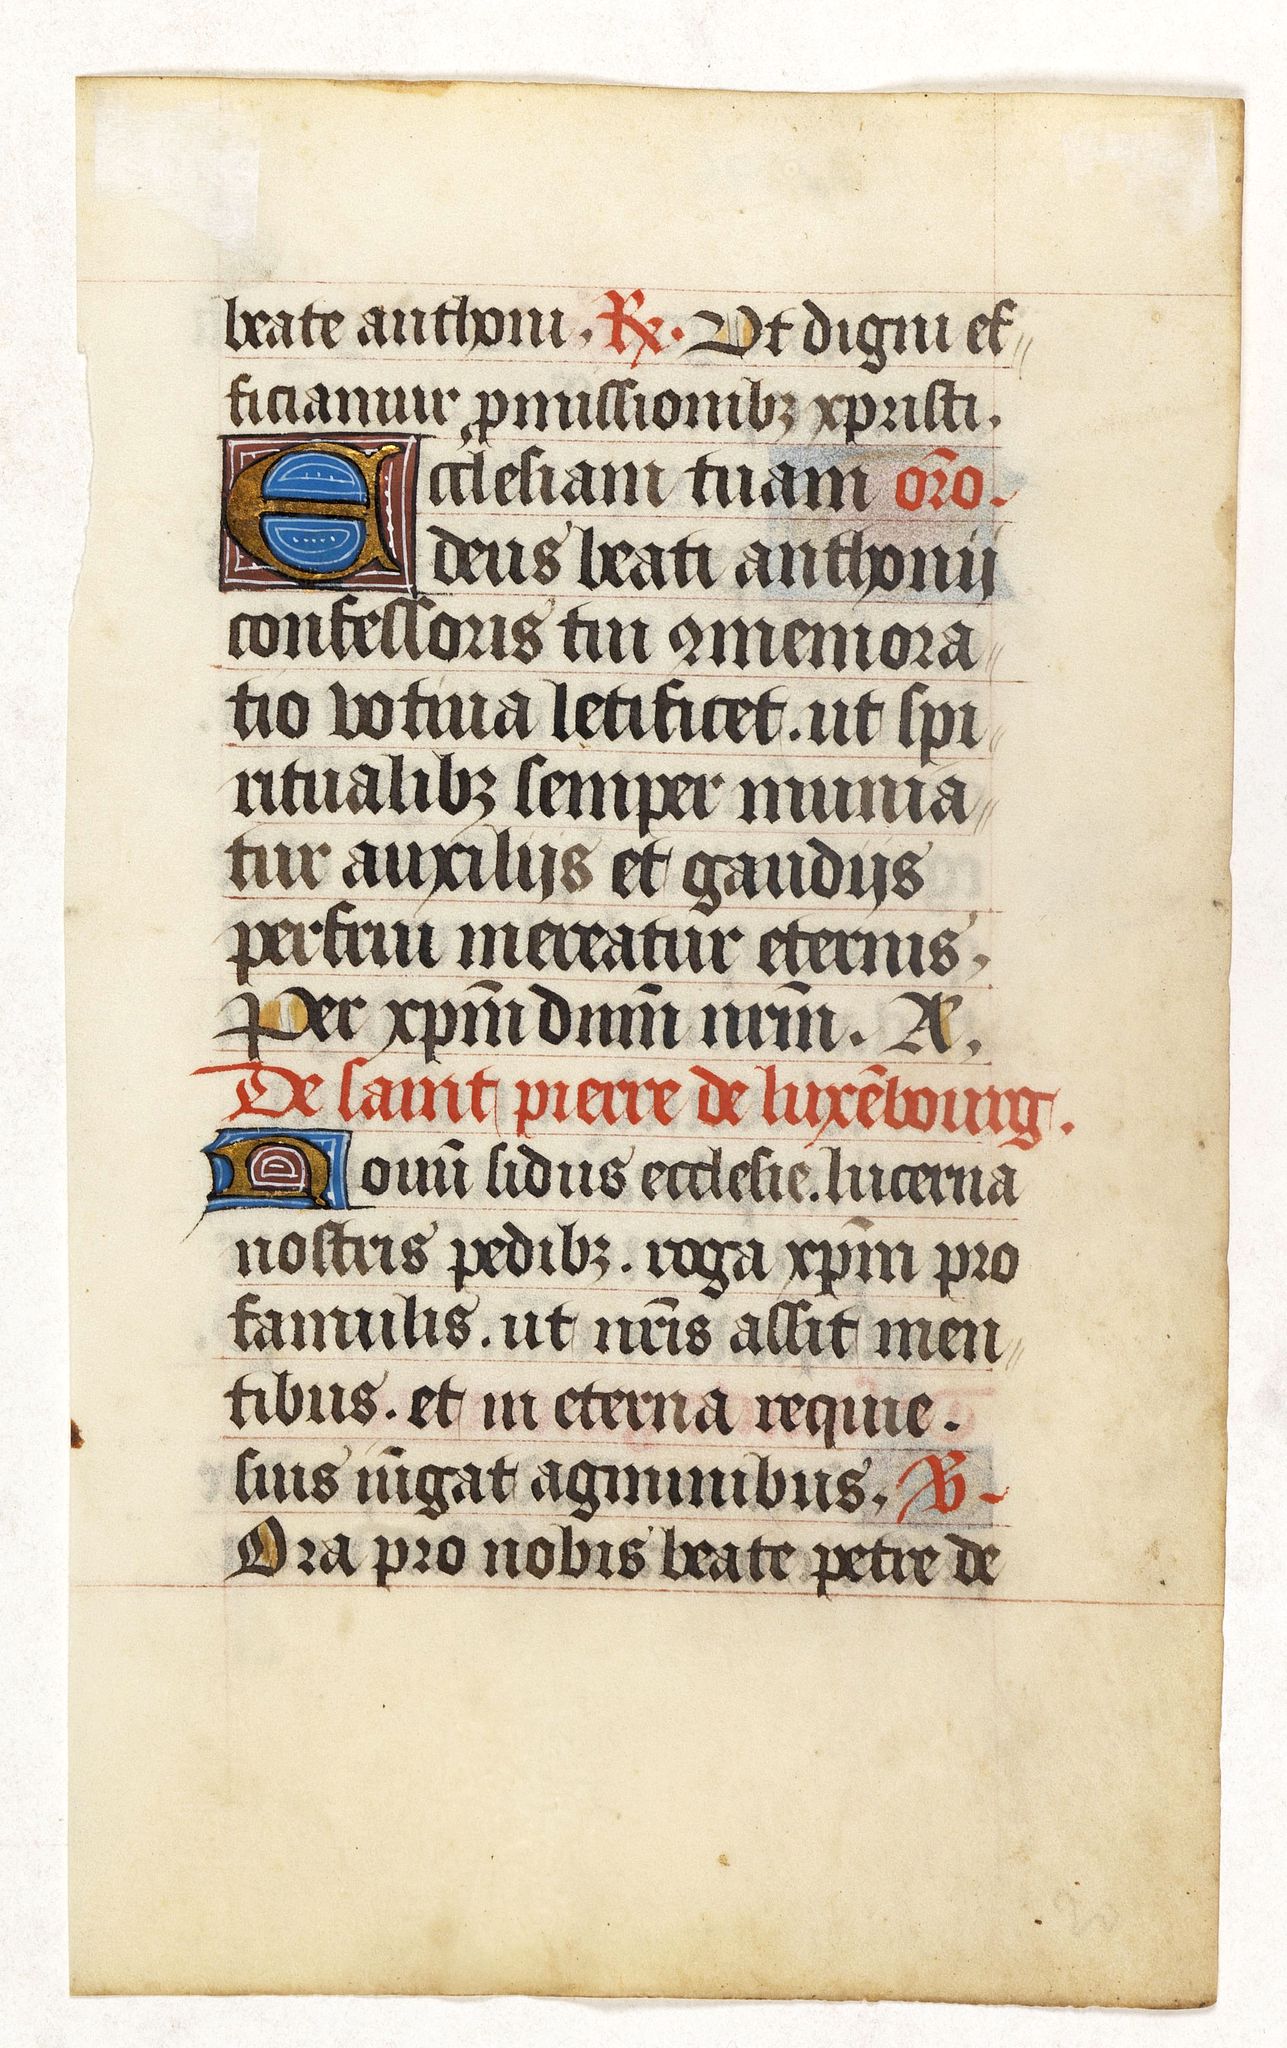 beate anthoni. ℟. Vt digni ef
ficiamur ꝓmissionibꝫ xpristi.
Ecclesiam tuam or̄o.
deus beati anthonij
confessoris tui ꝯmemora
tio votiua letificet. ut spi
ritualibꝫ semper munia
tur auxilijs et gaudijs
perfrui mereatur eternis.
Per xp̄m dnm̄ nrm̄. AE.
De saint pierre de luxēbourg.
Nouū sidus ecclesie. lucerna
nostris pedibꝫ. roga xp̄m pro
famulis. ut nr̄is assit men
tibus. et in eterna requie.
suis iūgat agminibus. ℣.
Ora pro nobis beate petre de